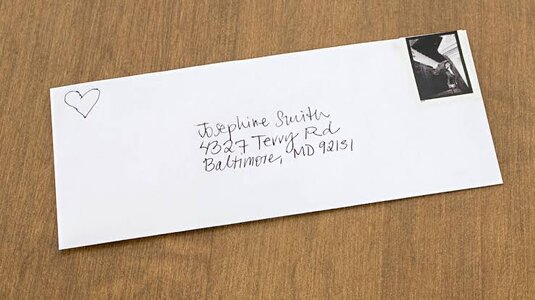 Josephine Smith
4327 Terry Rd
Baltimore, MD 92151